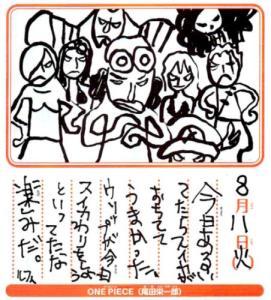 8月11日火
今日あるい
てたらスイカが
おちてて
うまかった。
ウソップが今日
スイカわりをしよう
といってたな
楽しみだ。ルフィ
ONE PIECE (尾田栄一郎)